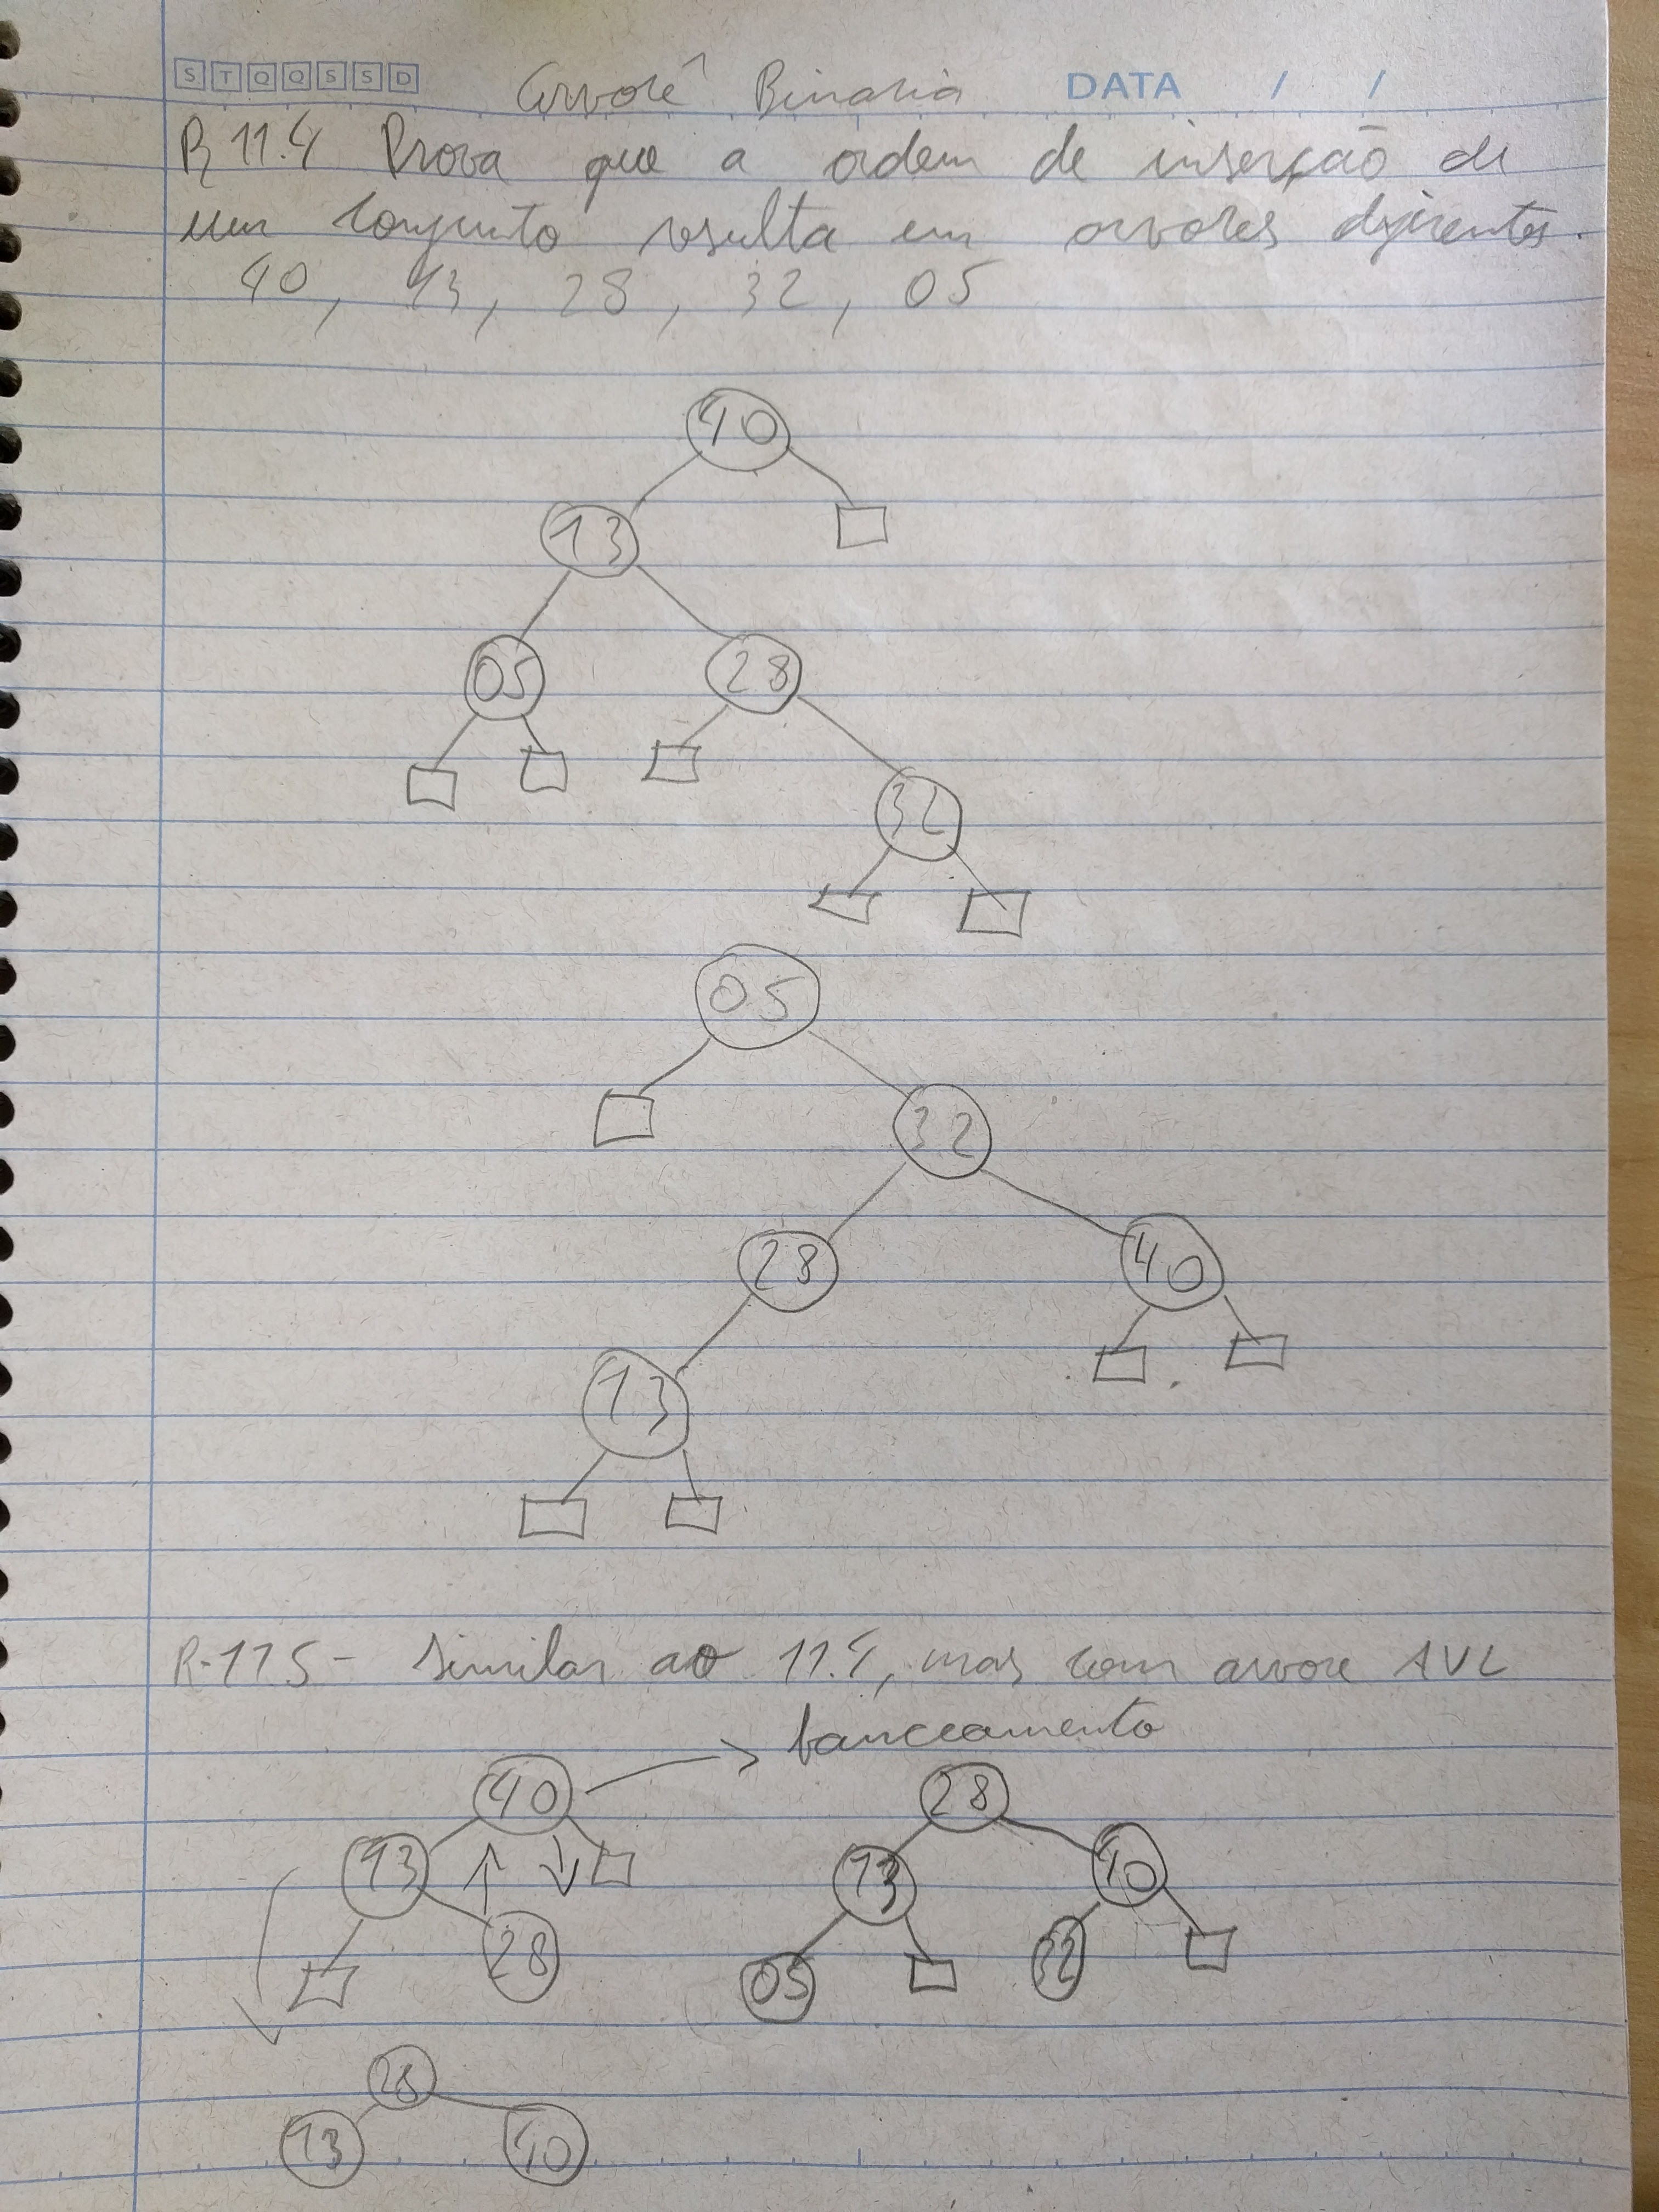 S T Q Q S S D Arvore Binaria DATA / /
R 11.4 Prova que a ordem de inserção de
um conjunto resulta em arvores diferentes.
40, 13, 28, 32, 05
40
13
05 28
32
05
32
28 40
13
R-11.5- Similar ao 11.4, mas com arvore AVL
banceamento
40 28
13 13 40
28 05 32
28
13 40